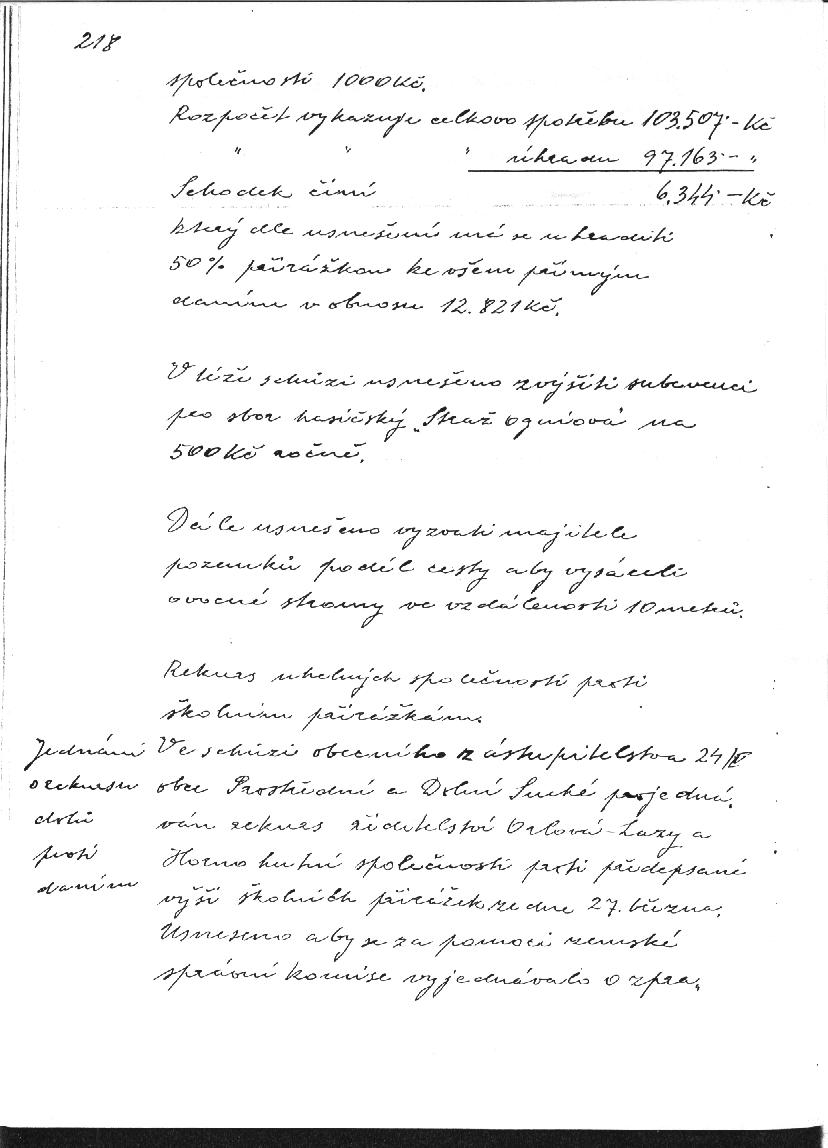 218
společnosti 1000Kč.
Rozpočet vykazuje celkovo spotřebu 103.507·- Kč
" " " úhradu 97.163·- "
Schodek činí 6.344·- Kč
který dle usnešení má se uhraditi
50% přirážkou ke všem přímým
daním v obnosu 12.821Kč.
V téže schůzi usnešeno zvýšiti subvenci
pro sbor hasičský „Straž Ogniová" na
500Kč ročně.
Dále usnešeno vyzvati majitele
pozemků podél cesty aby vysázeli
ovocné stromy ve vzdálenosti 10 metrů.
Rekurs uhelných společností proti
školním přirážkám.
Jednání
o rekursu
dolů
proti
daním
Ve schůzi obecního zástupitelstva 24/
obce Prostřední a Dolní Suché projedná„
ván rekurs ředitelství Orlová-Lazy a
Horno hutní společnosti proti předepsané
výši školních přirážek ze dne 27. března.
Usneseno aby se za pomoci zemské
správní komise vyjednávalo o zpra„